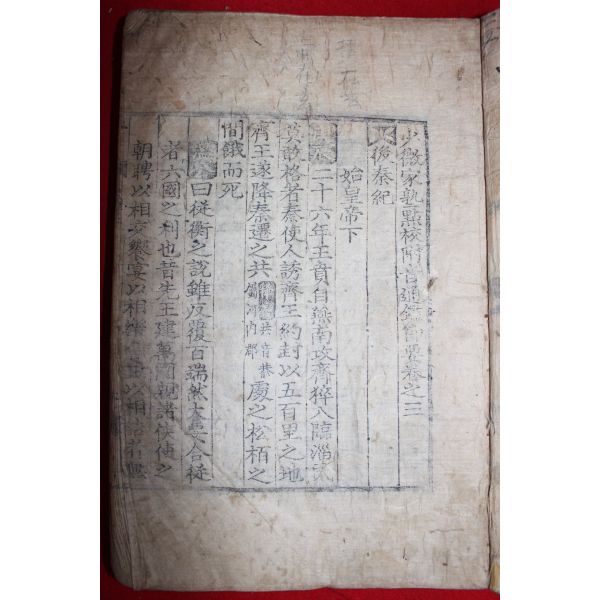 少微家塾點校附音通鑑節要卷之三
後秦紀
始皇帝下
二十六年王賁自燕南攻齊猝入臨淄民
莫敢格者秦使人誘齊王約封以五百里之地
齊王遂降秦遷之共 共音恭 河內郡 處之松栢之
間餓而死
曰從衡之說雖反覆百端然大要合從
者六國之利也昔先王建萬國親諸侯使之
朝聘以相交饗宴以相樂會以相結者無